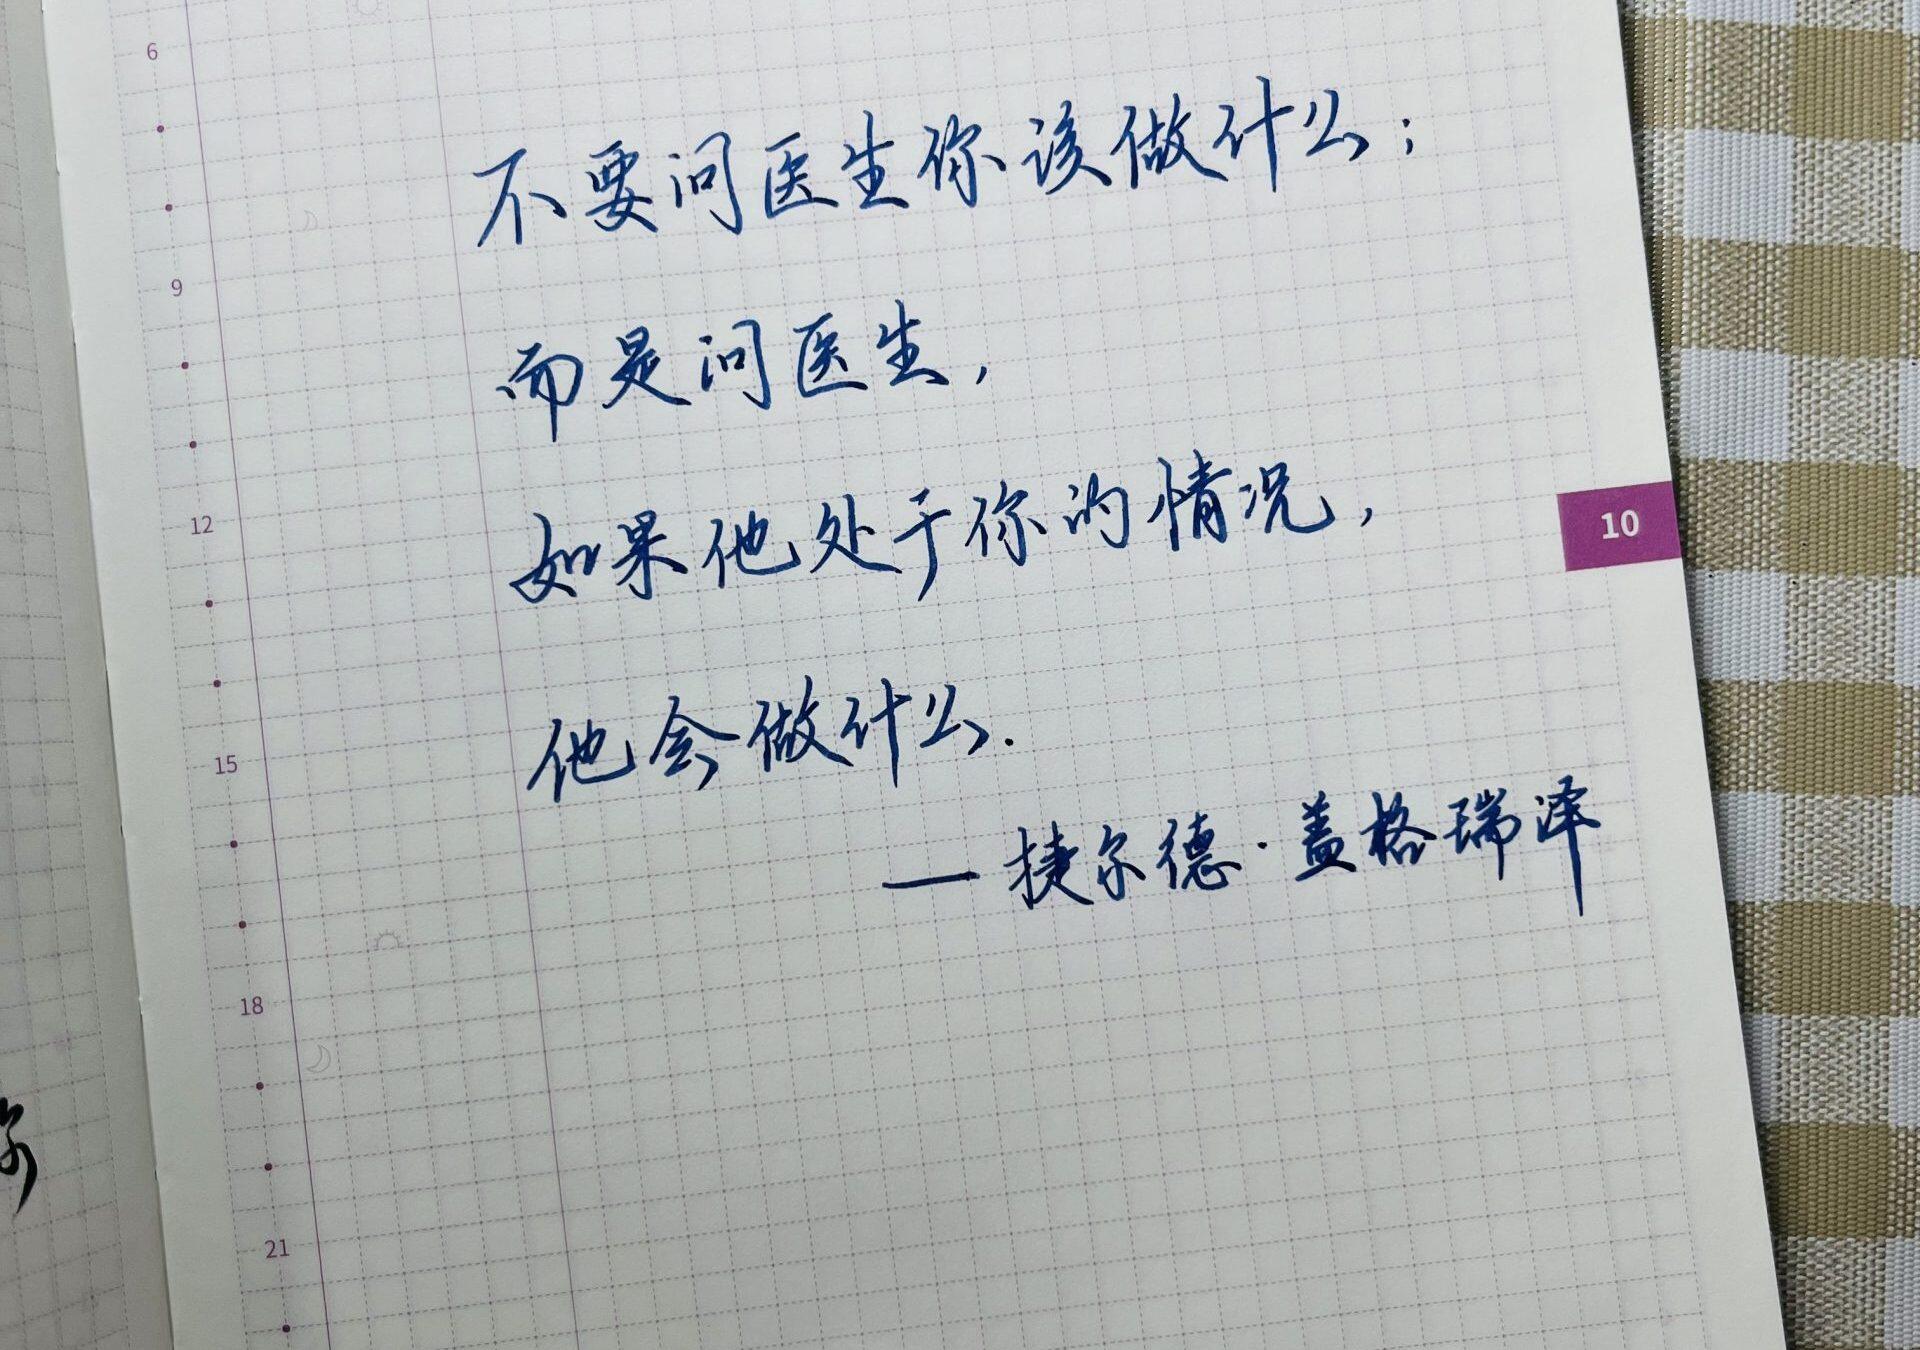 6
不要问医生你该做什么；
9
而是问医生，
如果他处于你的情况，
12
10
他会做什么.
15
—捷尔德·盖格瑞泽
18
21